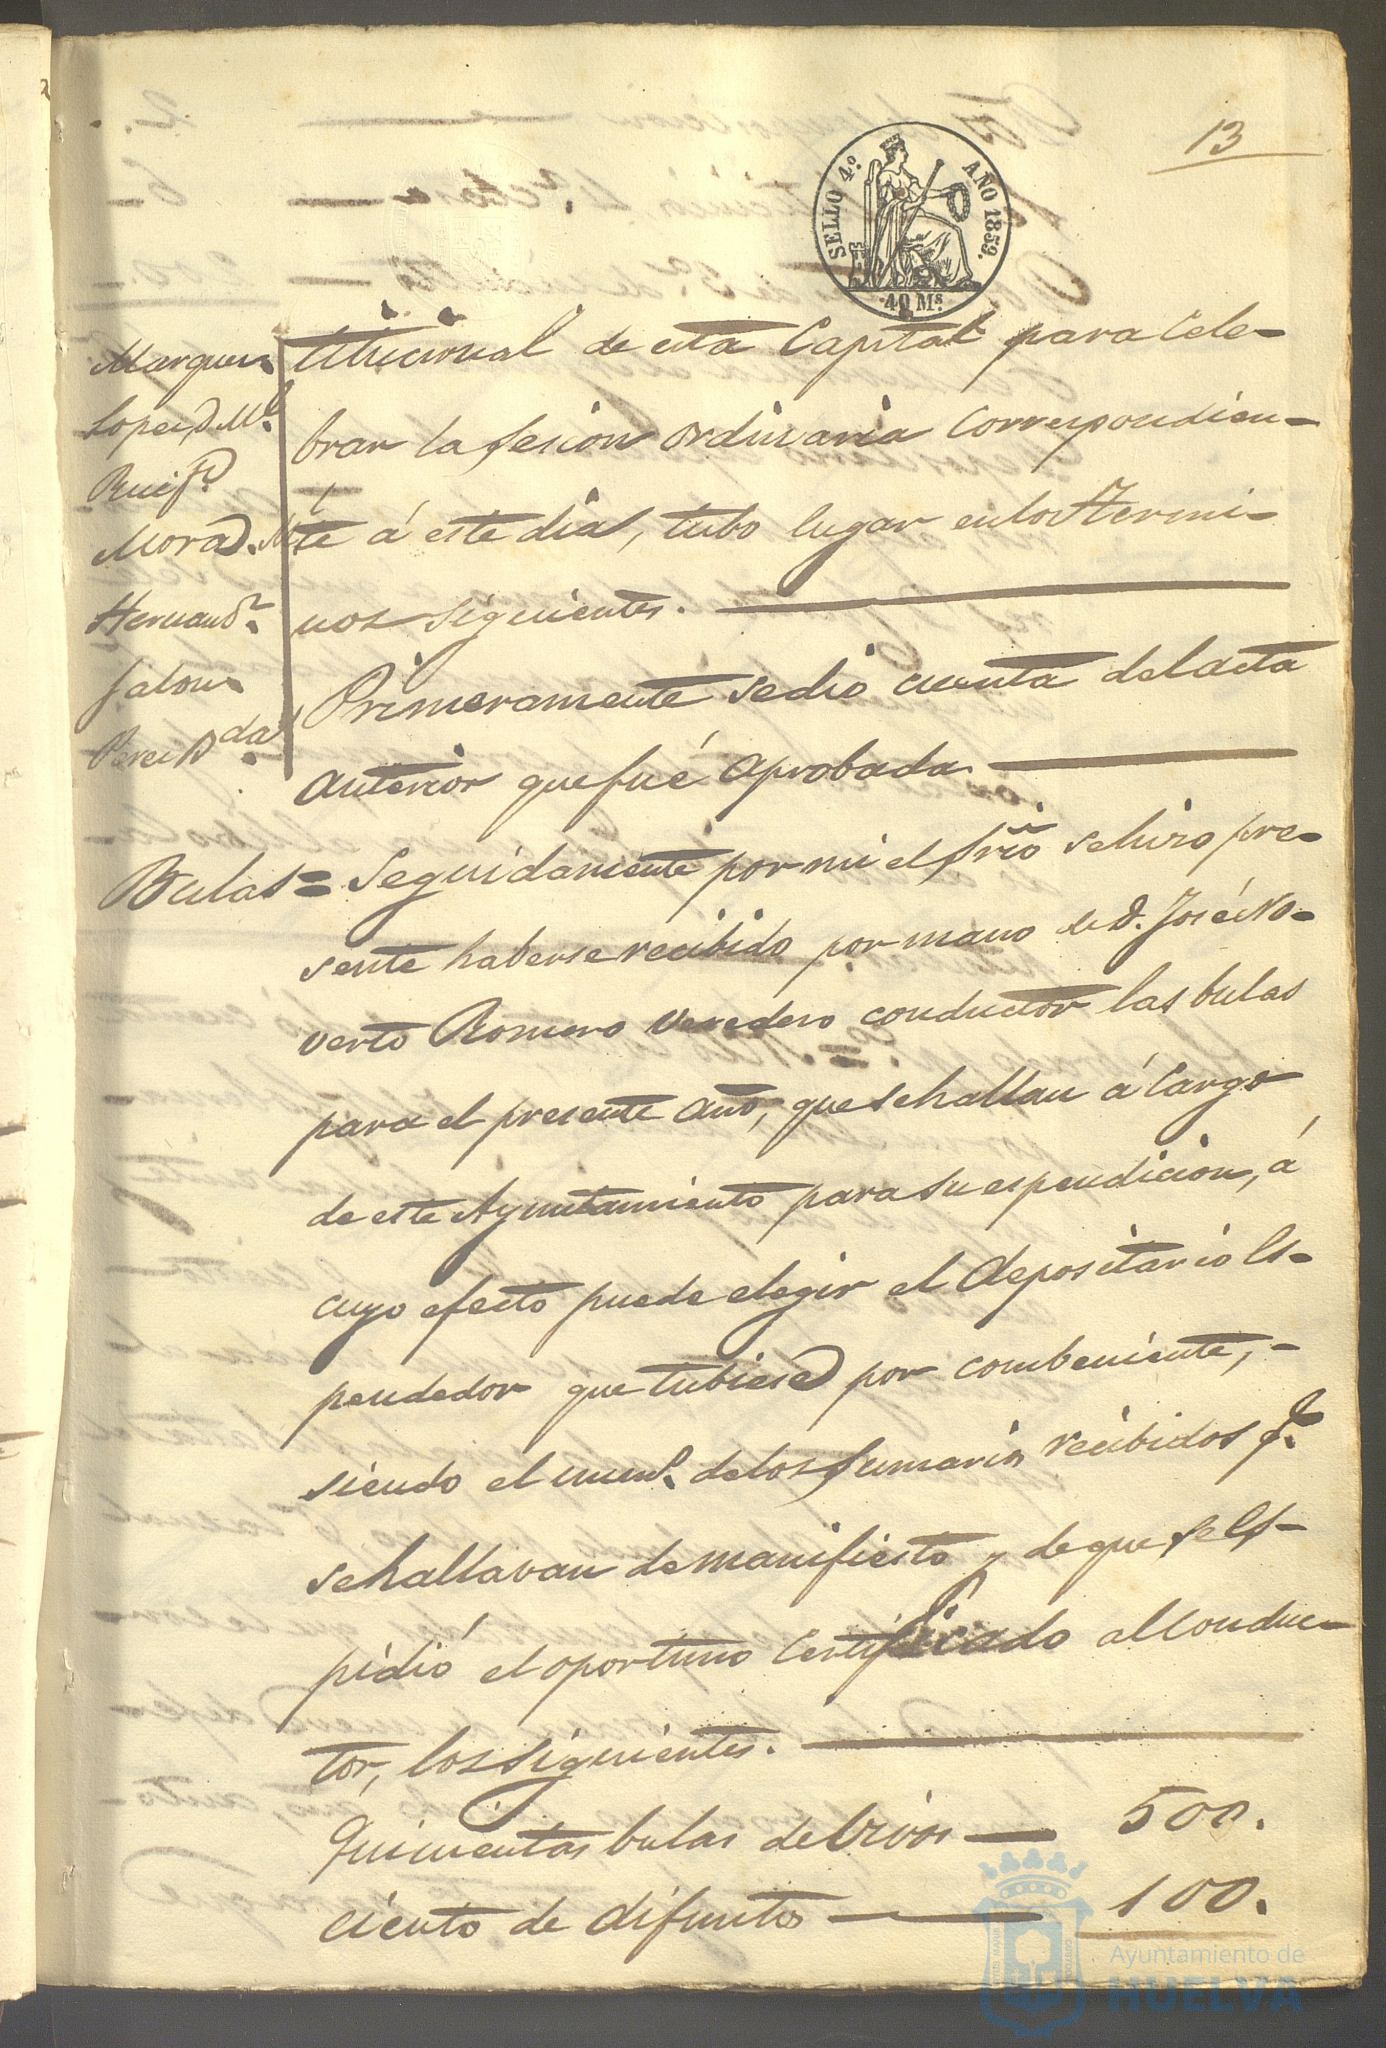 13
SELLO 4º. AÑO 1859.
40 Ms
Marquez
Lopez, D. Ml.
Ruiz fd.
Mora D. M.
Hernandz.
Jalon.
Perez Dda.
titucional de esta Capital para Cele-
brar la sesion ordinaria correspondien-
te á este dia, tubo lugar en los termi-
nos siguientes.
Primeramente se dió cuenta del acta
anterior que fué aprobada.
Bulas = Seguidamente por mi el Srio se hizo pre-
sente haberse recibido por mano de D. José No-
verto Romero Veredero conductor las bulas
para el presente año, que se hallan á cargo
de este Ayuntamiento para su espendicion, á
cuyo efecto puede elegir el depositario Es-
pendedor que tubiese por combeniente,-
siendo el numº. de los sumarios recibidos q.e
se hallavan de manifiesto y de que se es-
pidió el oportuno Certificado al Conduc-
tor, los siguientes.
Quinientas bulas de Vivos — 500.
ciento de difuntos — 100.
Ayuntamiento de
HUELVA